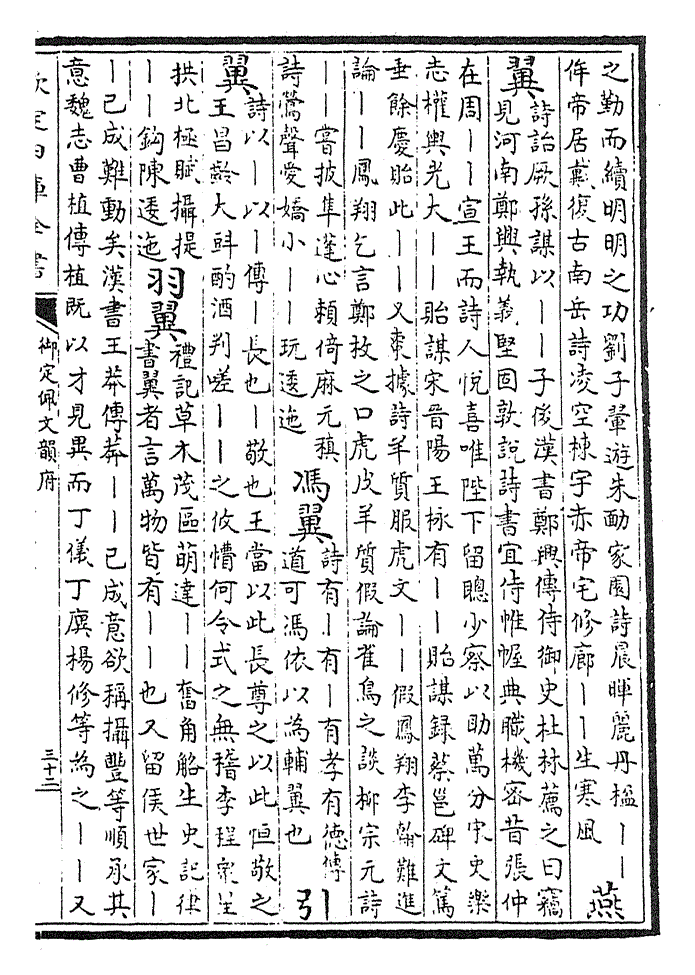 之勤而續明明之功劉子翬遊朱勔家園詩晨暉麗丹楹丨丨
侔帝居戴復古南岳詩凌空棟宇赤帝宅修廊丨丨生寒風
燕翼
詩詒厥孫謀以丨丨子後漢書鄭興傳侍御史杜林薦之曰竊
見河南鄭興執義堅固敦說詩書宜侍帷幄典職機密昔張仲
在周丨丨宣王而詩人悅喜唯陛下留聽少察以助萬分宋史樂
志權輿光大丨丨貽謀宋晉陽王栐有丨丨貽謀録蔡邕碑文篤
垂餘慶貽此丨丨又棗據詩羊質服虎文丨丨假鳳翔李翰難進
論丨丨鳳翔乞言鄭枚之口虎皮羊質假論雀鳥之談柳宗元詩
丨丨嘗披隼蓬心賴倚麻元稹
詩鶯聲愛嬌小丨丨玩逶迤
馮翼
詩有丨有丨有孝有德傳
道可馮依以為輔翼也
引翼
詩以丨以丨傳丨長也丨敬也王當以此長尊之以此恒敬之
王昌齡大斝酌酒判嗟丨丨之攸懵何令式之無稽李程衆星
拱北極賦攝提
丨丨鈎陳逶迤
羽翼
禮記草木茂區萌達丨丨奮角觡生史記律
書翼者言萬物皆有丨丨也又留侯世家丨
丨已成難動矣漢書王莽傳莽丨丨已成意欲稱攝豐等順承其
意魏志曹植傳植既以才見異而丁儀丁廙楊修等為之丨丨又
欽定四庫全書
御定佩文韻府
三十二